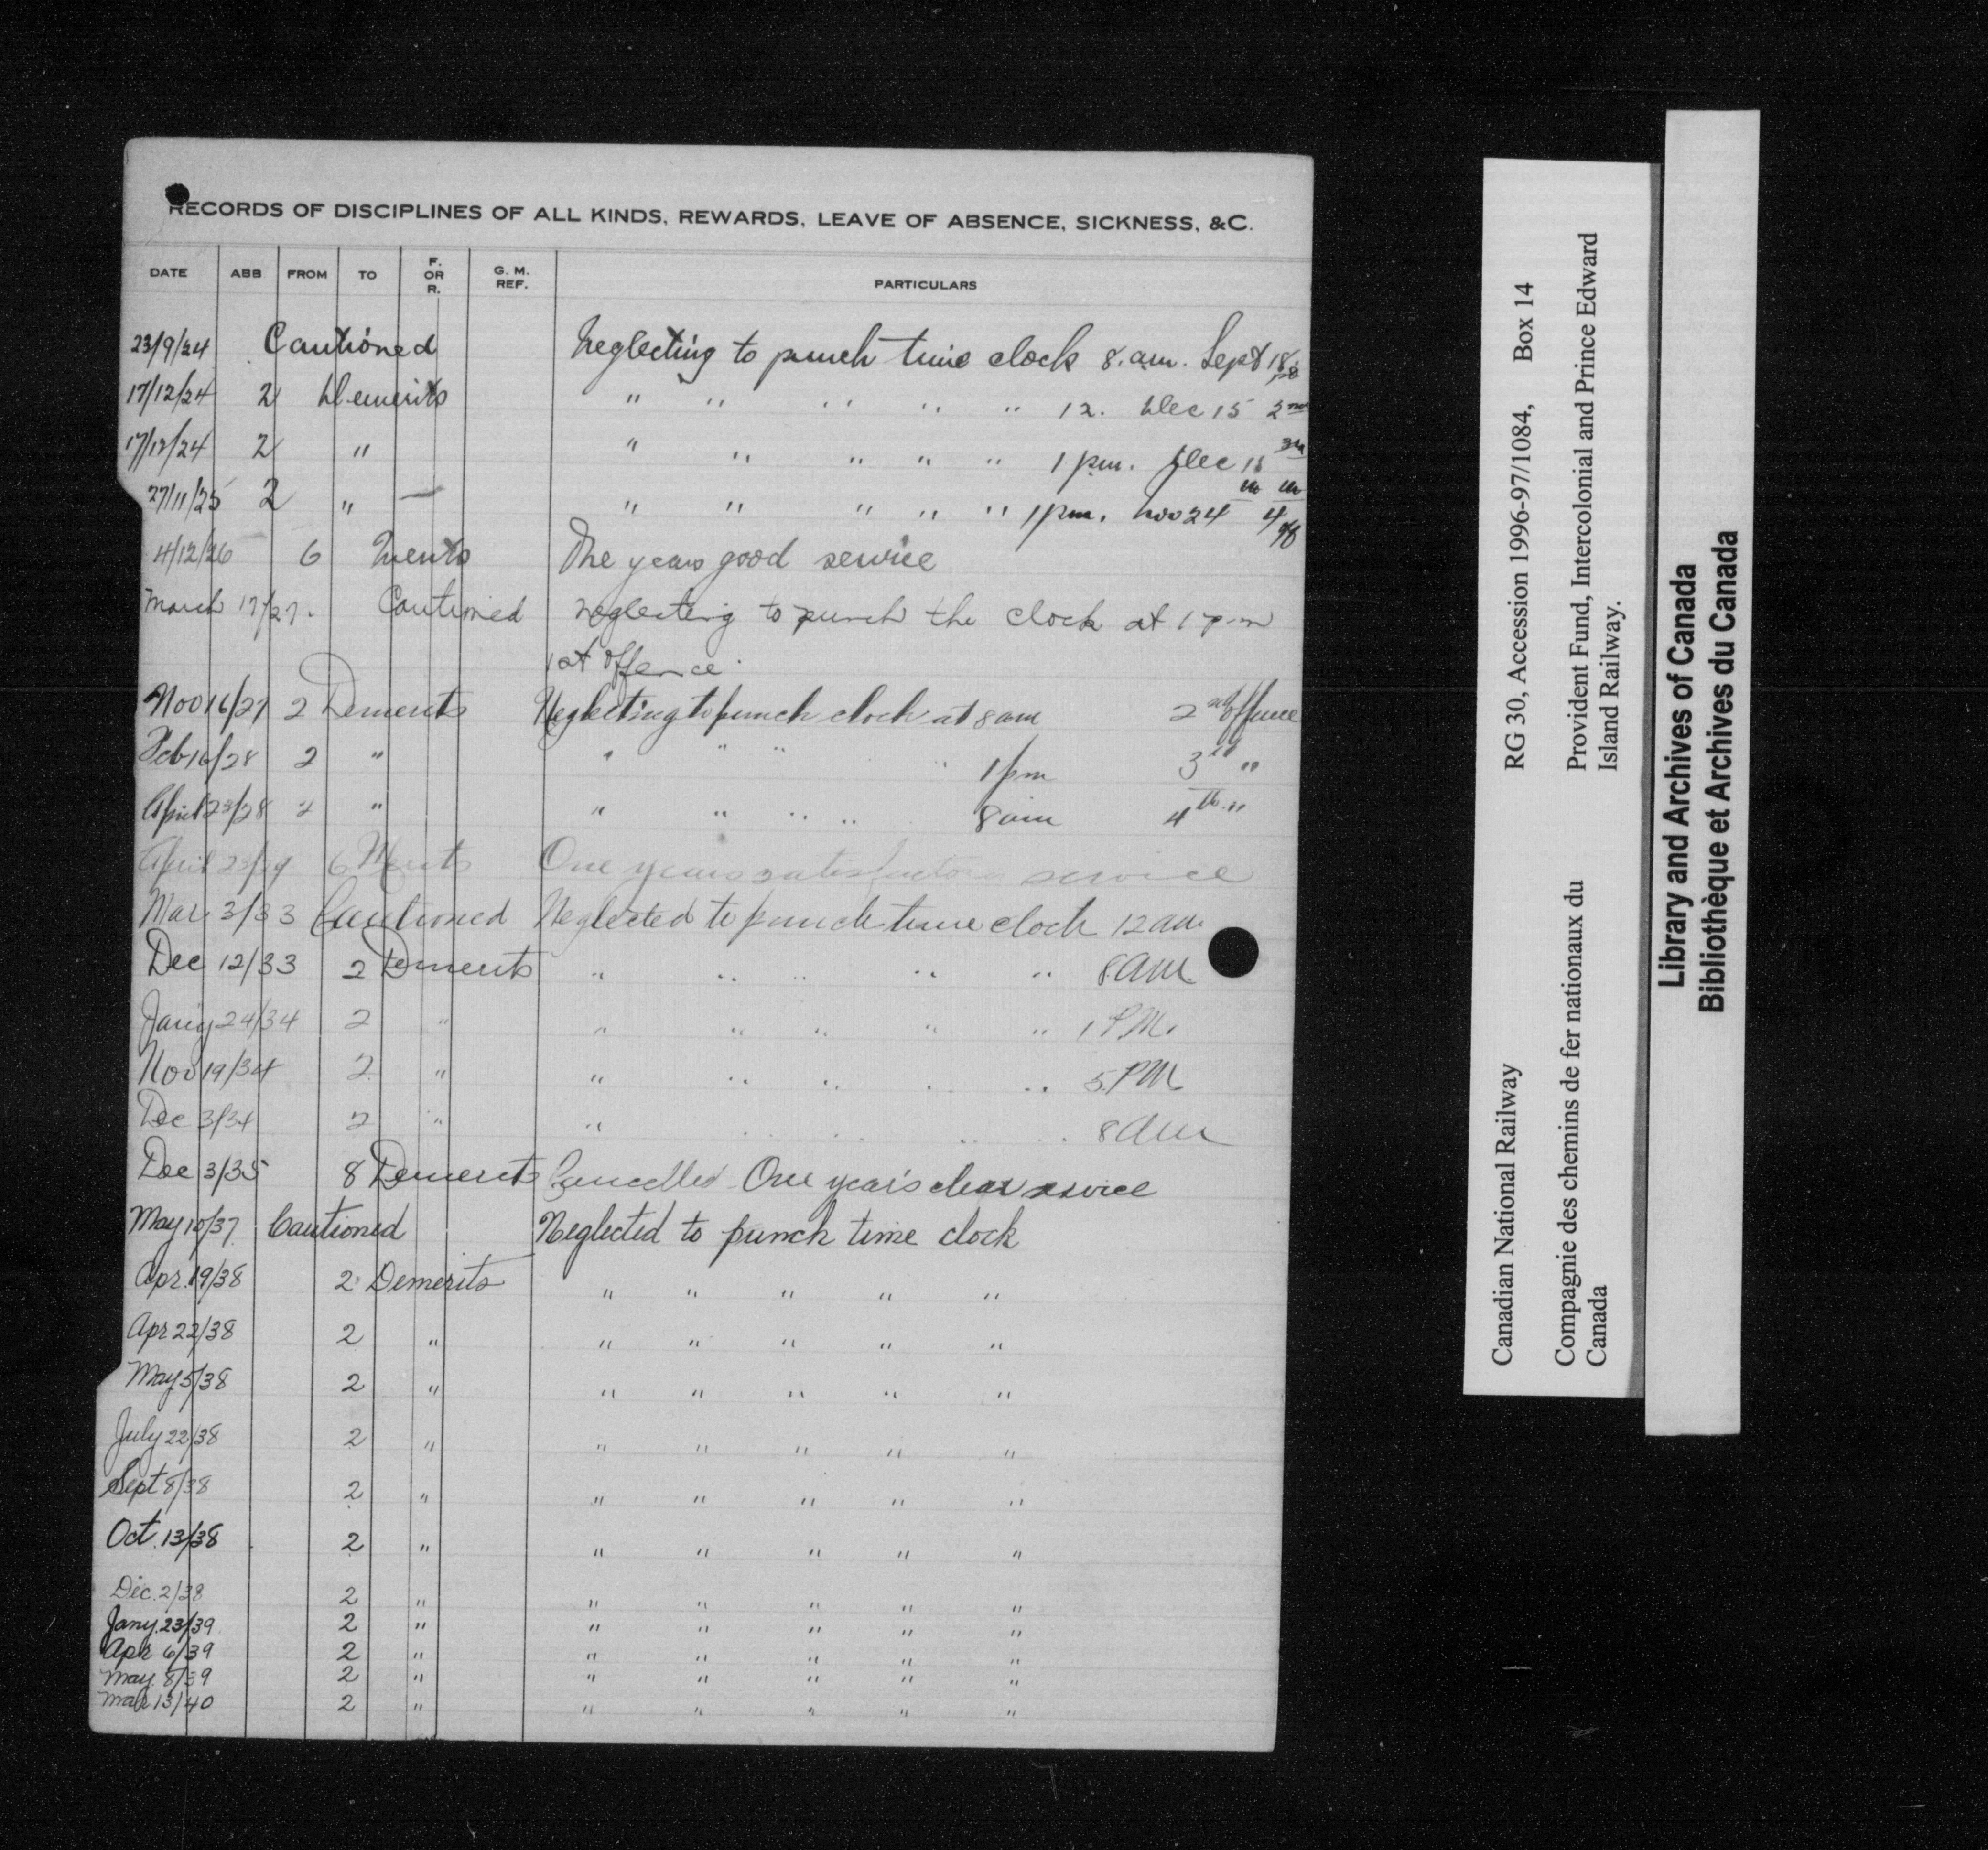 RECORDS OF DISCIPLINES OF ALL KINDS, REWARDS, LEAVE OF ABSENCE, SICKNESS, &C.
DATE ABB FROM TO F. OR R. G. M. REF. PARTICULARS
23/9/24 Cautioned Neglecting to punch time clock 8. am. Sept 18
17/12/24 2 Demerits " " " " " 12. Dec 15 2nd
17/12/24 2 " " " " " " 1 pm. Dec 15 3rd
27/11/25 2 " — " " " " " 1 pm. Nov 24th 4th
4/12/26 6 Merits One years good service
March 17/27. Cautioned neglecting to punch the clock at 1 p.m
1st offence.
Nov 16/27 2 Demerits Neglecting to punch clock at 8 am 2nd offence
Feb 16/28 2 " " " " " 1 pm 3rd "
April 23/28 2 " " " " " 8 am 4th "
April 29 6 Merits One years satisfactory service
Mar 3/33 Cautioned Neglected to punch time clock 12 am
Dec 12/33 2 Demerits " " " " " 8 AM.
Jany 24/34 2 " " " " " " 1 P.M.
Nov 19/34 2 " " " " " " 5. PM
Dec 3/34 2 " " " " " " 8 AM
Dec 3/35 8 Demerits Cancelled One year's clear service
May 10/37 Cautioned Neglected to punch time clock
Apr. 19/38 2 Demerits " " " " "
Apr 22/38 2 " " " " " "
May 5/38 2 " " " " " "
July 22/38 2 " " " " " "
Sept 8/38 2 " " " " " "
Oct. 13/38 2 " " " " " "
Dec. 2/38 2 " " " " " "
Jany. 23/39 2 " " " " " "
Apr 6/39 2 " " " " " "
May. 8/39 2 " " " " " "
Mar 13/40 2 " " " " " "
Canadian National Railway RG 30, Accession 1996-97/1084, Box 14
Compagnie des chemins de fer nationaux du Provident Fund, Intercolonial and Prince Edward
Canada Island Railway.
Library and Archives of Canada
Bibliothèque et Archives du Canada